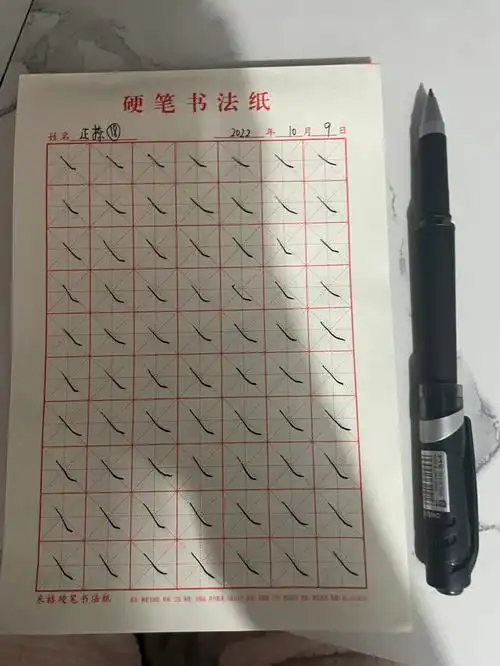 硬笔书法纸
姓名 正捺⑱ 2022 年 10 月 9 日
米格硬笔书法纸